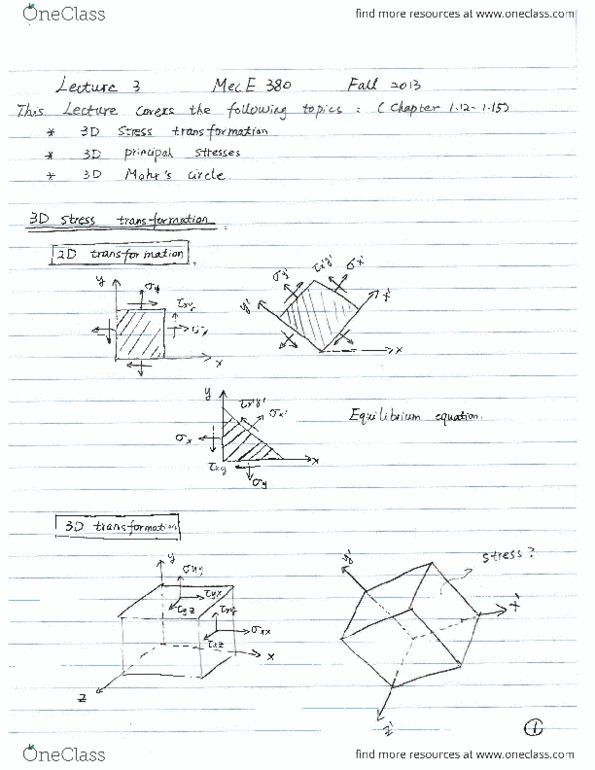 OneClass
find more resources at www.oneclass.com
Lecture 3 MecE 380 Fall 2013
This Lecture covers the following topics: (Chapter 1.12-1.15)
* 3D Stress transformation
* 3D principal stresses
* 3D Mohr's circle
3D stress transformation
2D transformation
y σy τxy σx x
y' σy' τx'y' σx' x' x
y τx'y' σx' Equilibrium equation.
σx τxy σy x
3D transformation
y σyy τyx τyz τxy σxx τxz x z
y' stress? x' z'
1
OneClass
find more resources at www.oneclass.com